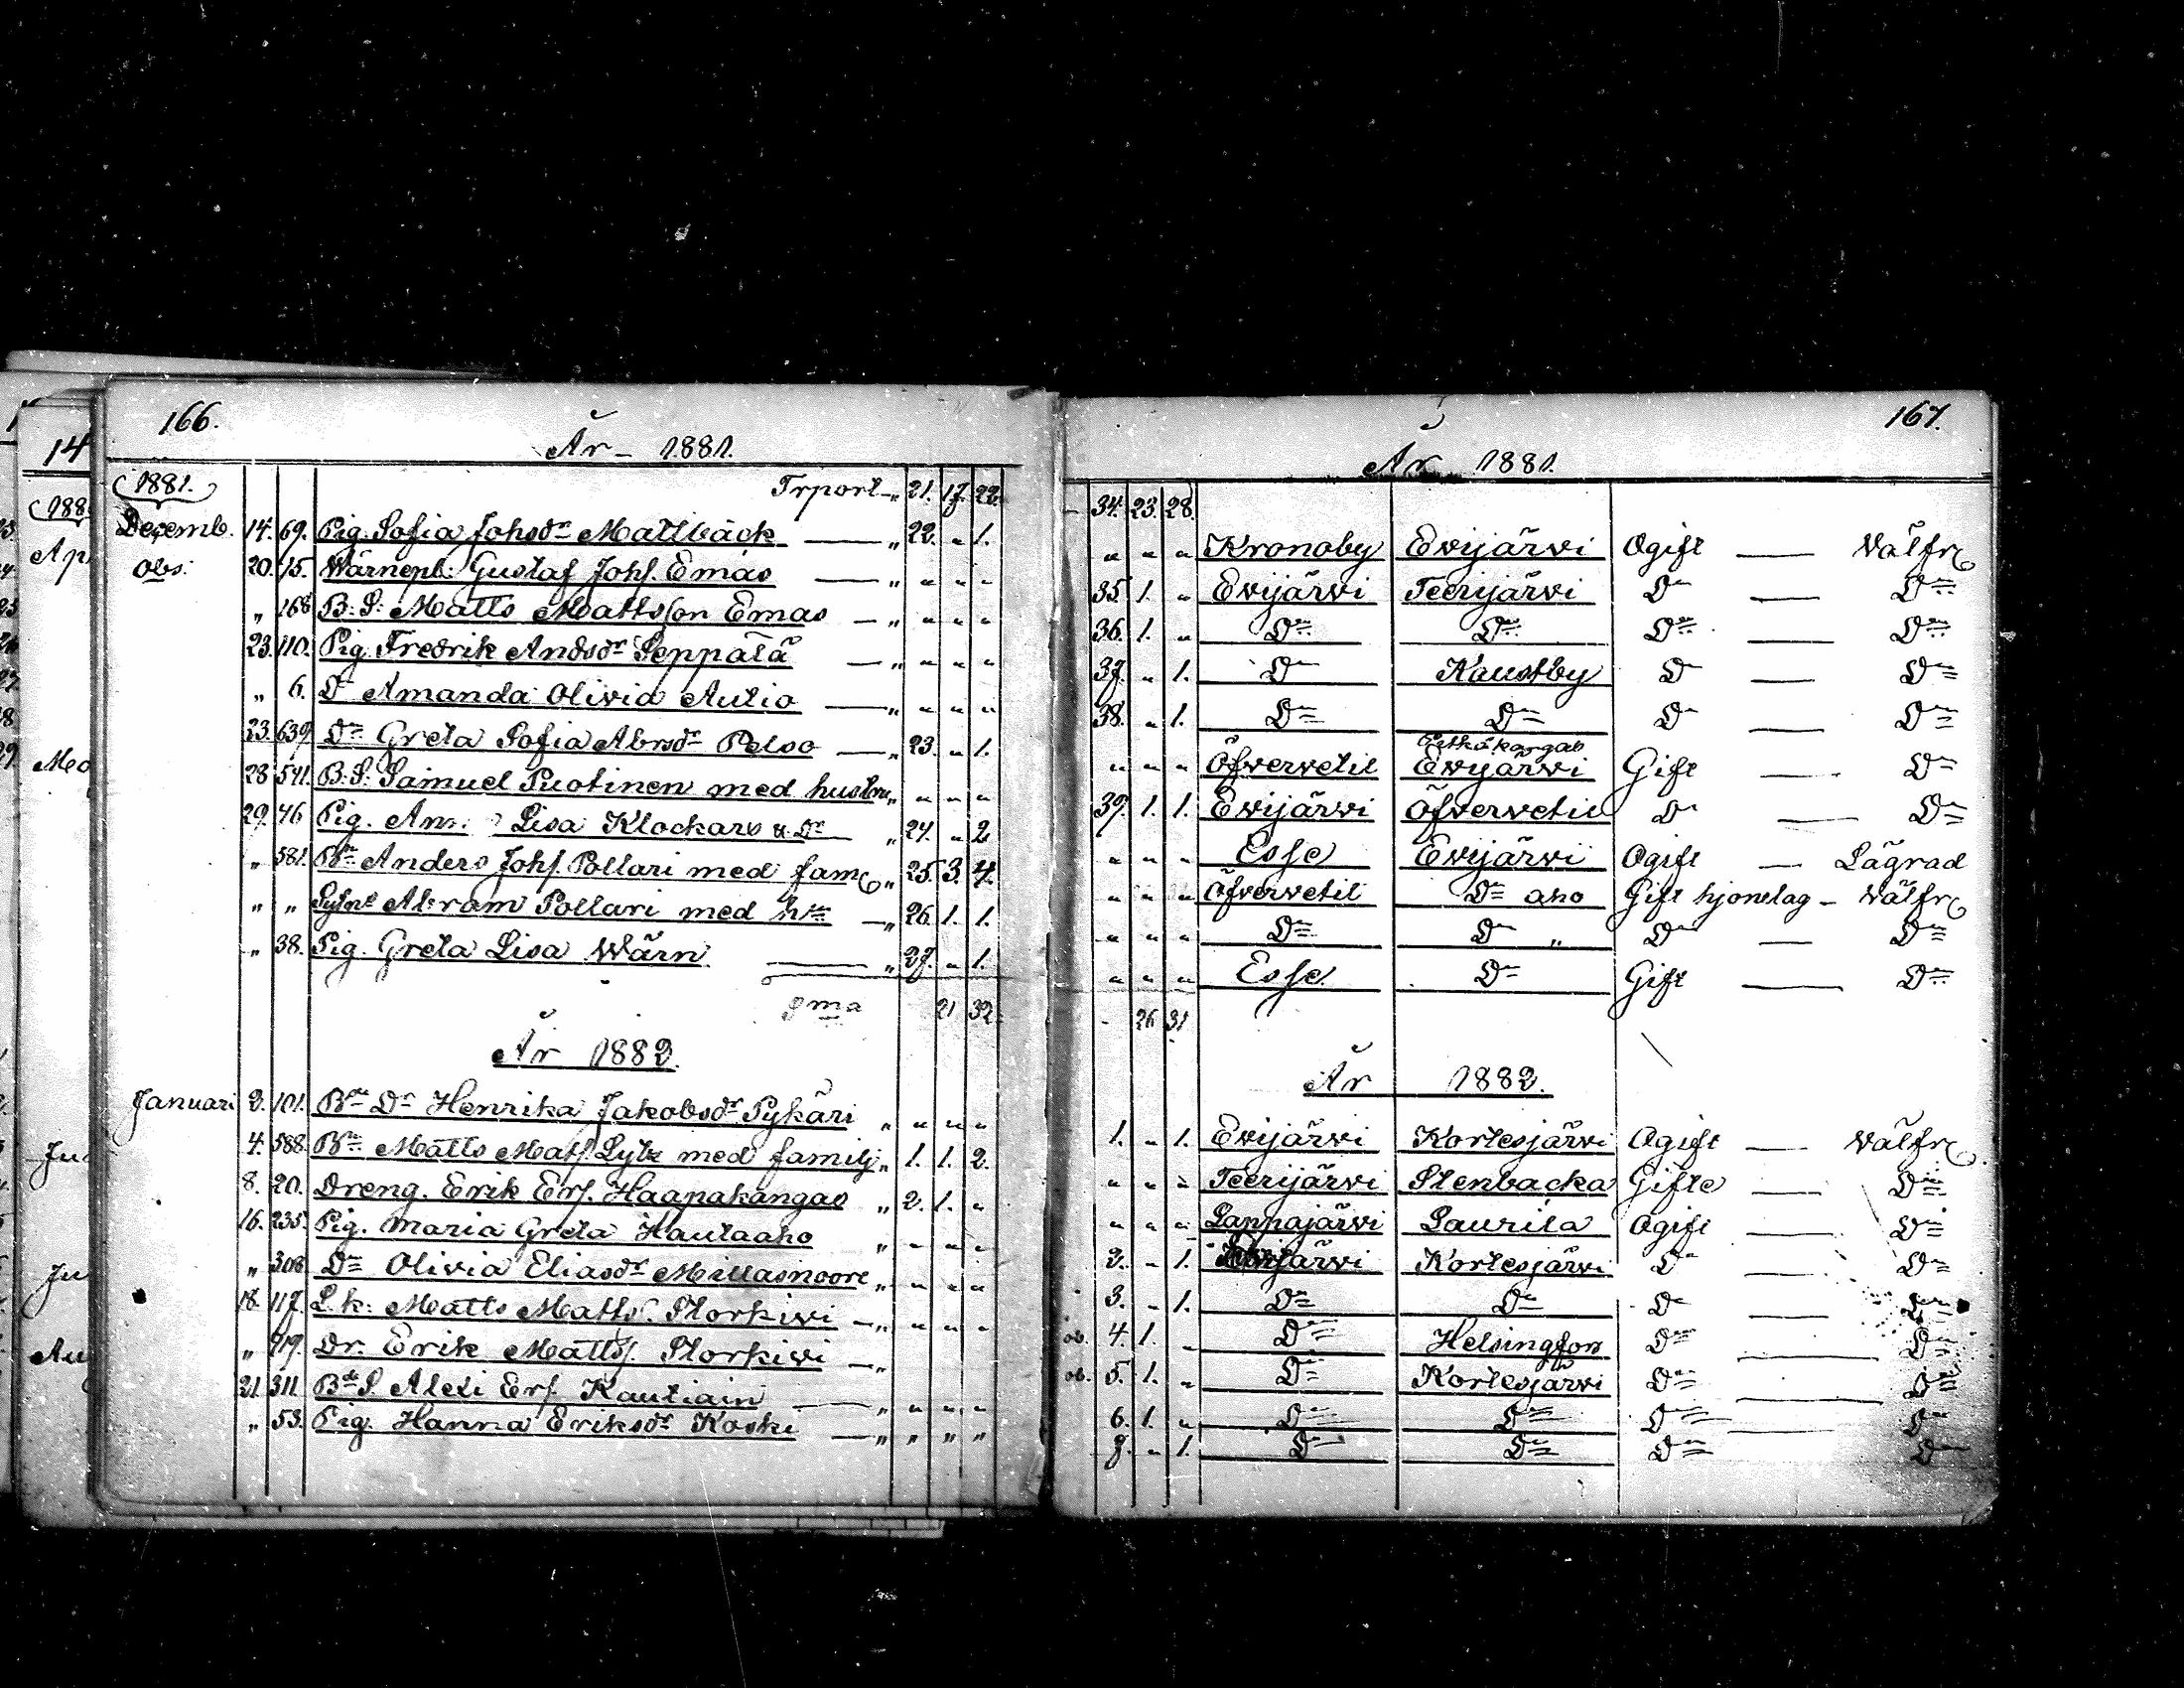 166.
År 1881.
1881.
Trport " 21. 17. 22.
Decemb. 14. 69. Pig. Sofia Johsdr Mattbäck — " 22. " 1.
obs: 20. 15. Wärnepl: Gustaf Johs. Emas — " " " "
" 168 B: S: Matts Mattsson Emas — " " " "
23. 110. Pig. Fredrik Andsdr Seppälä — " " " "
" 6. Dº Amanda Olivia Autio — " " " "
23. 639 Dº Greta Sofia Abrsdr Pelso — " 23. " 1.
28 541. B: S: Samuel Puotinen med hustru " " " "
29. 46 Pig. Lisa Klockars — " 24. " 2
" 581. Bn Anders Johs. Pollari med fam " 25. 3. 4.
" " Abram Pollari med — " 26. 1. 1.
" 38. Pig. Greta Lisa Wärn — " 27. " 1.
Sma 21 32.
År 1882.
Januari 2. 101. Bde Dr Henrika Jakobsdr Pykäri " " " "
4. 588. Bn Matts Mats. Lytz med familj " 1. 1. 2.
8. 20. Dreng. Erik Ers. Haapakangas " 2. 1. "
16. 235. Pig. Maria Greta Hautaaho " " " "
" 308 Dº Olivia Eliasdr " " " "
18. 117. L.k: Matts Matts. Storkivi — " " " "
" 419. Dr. Erik Matts. Storkivi — "
21. 311 Bde S Alexi Ers. Kautiain — " " " "
" 53. Pig. Hanna Eriksdr Koski — " " " "
167.
År 1881.
34. 23. 28.
" " " Kronoby Evijärvi Ogift — Välfr
35. 1. " Evijärvi Teerijärvi Dº — Dº
36. 1. " Dº Dº Dº — Dº
37. " 1. Dº Kaustby Dº — Dº
38. " 1. Dº Dº Dº — Dº
" " " Öfvervetil Evijärvi Gift — Dº
39. 1. 1. Evijärvi Öfvervetil Dº — Dº
" " " Esse Evijärvi Ogift — Lägrad
" " " Öfvervetil Dº aho Gift hjonelag — Välfr
" " " Dº Dº " Dº — Dº
" " " Esse Dº Gift — Dº
26 31
År 1882.
1. " 1. Evijärvi Kortesjärvi Ogift — Välfr
" " " Teerijärvi Stenbacka Gifte — Dº
" " " Lappajärvi Laurila Ogift — Dº
2. " 1. Evijärvi Kortesjärvi Dº — Dº
3. " 1. Dº Dº Dº Dº
ob. 4. 1. " Dº Helsingfors Dº — Dº
ob. 5. 1. " Dº Kortesjärvi Dº — Dº
6. 1. " Dº Dº Dº — Dº
7. " 1. Dº Dº Dº Dº